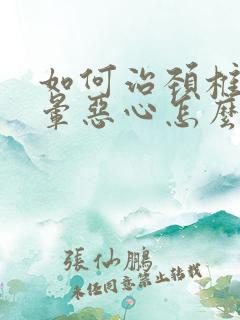 如何治頚椎
暈惡心怎麽
張仙鵬
未经同意禁止转载